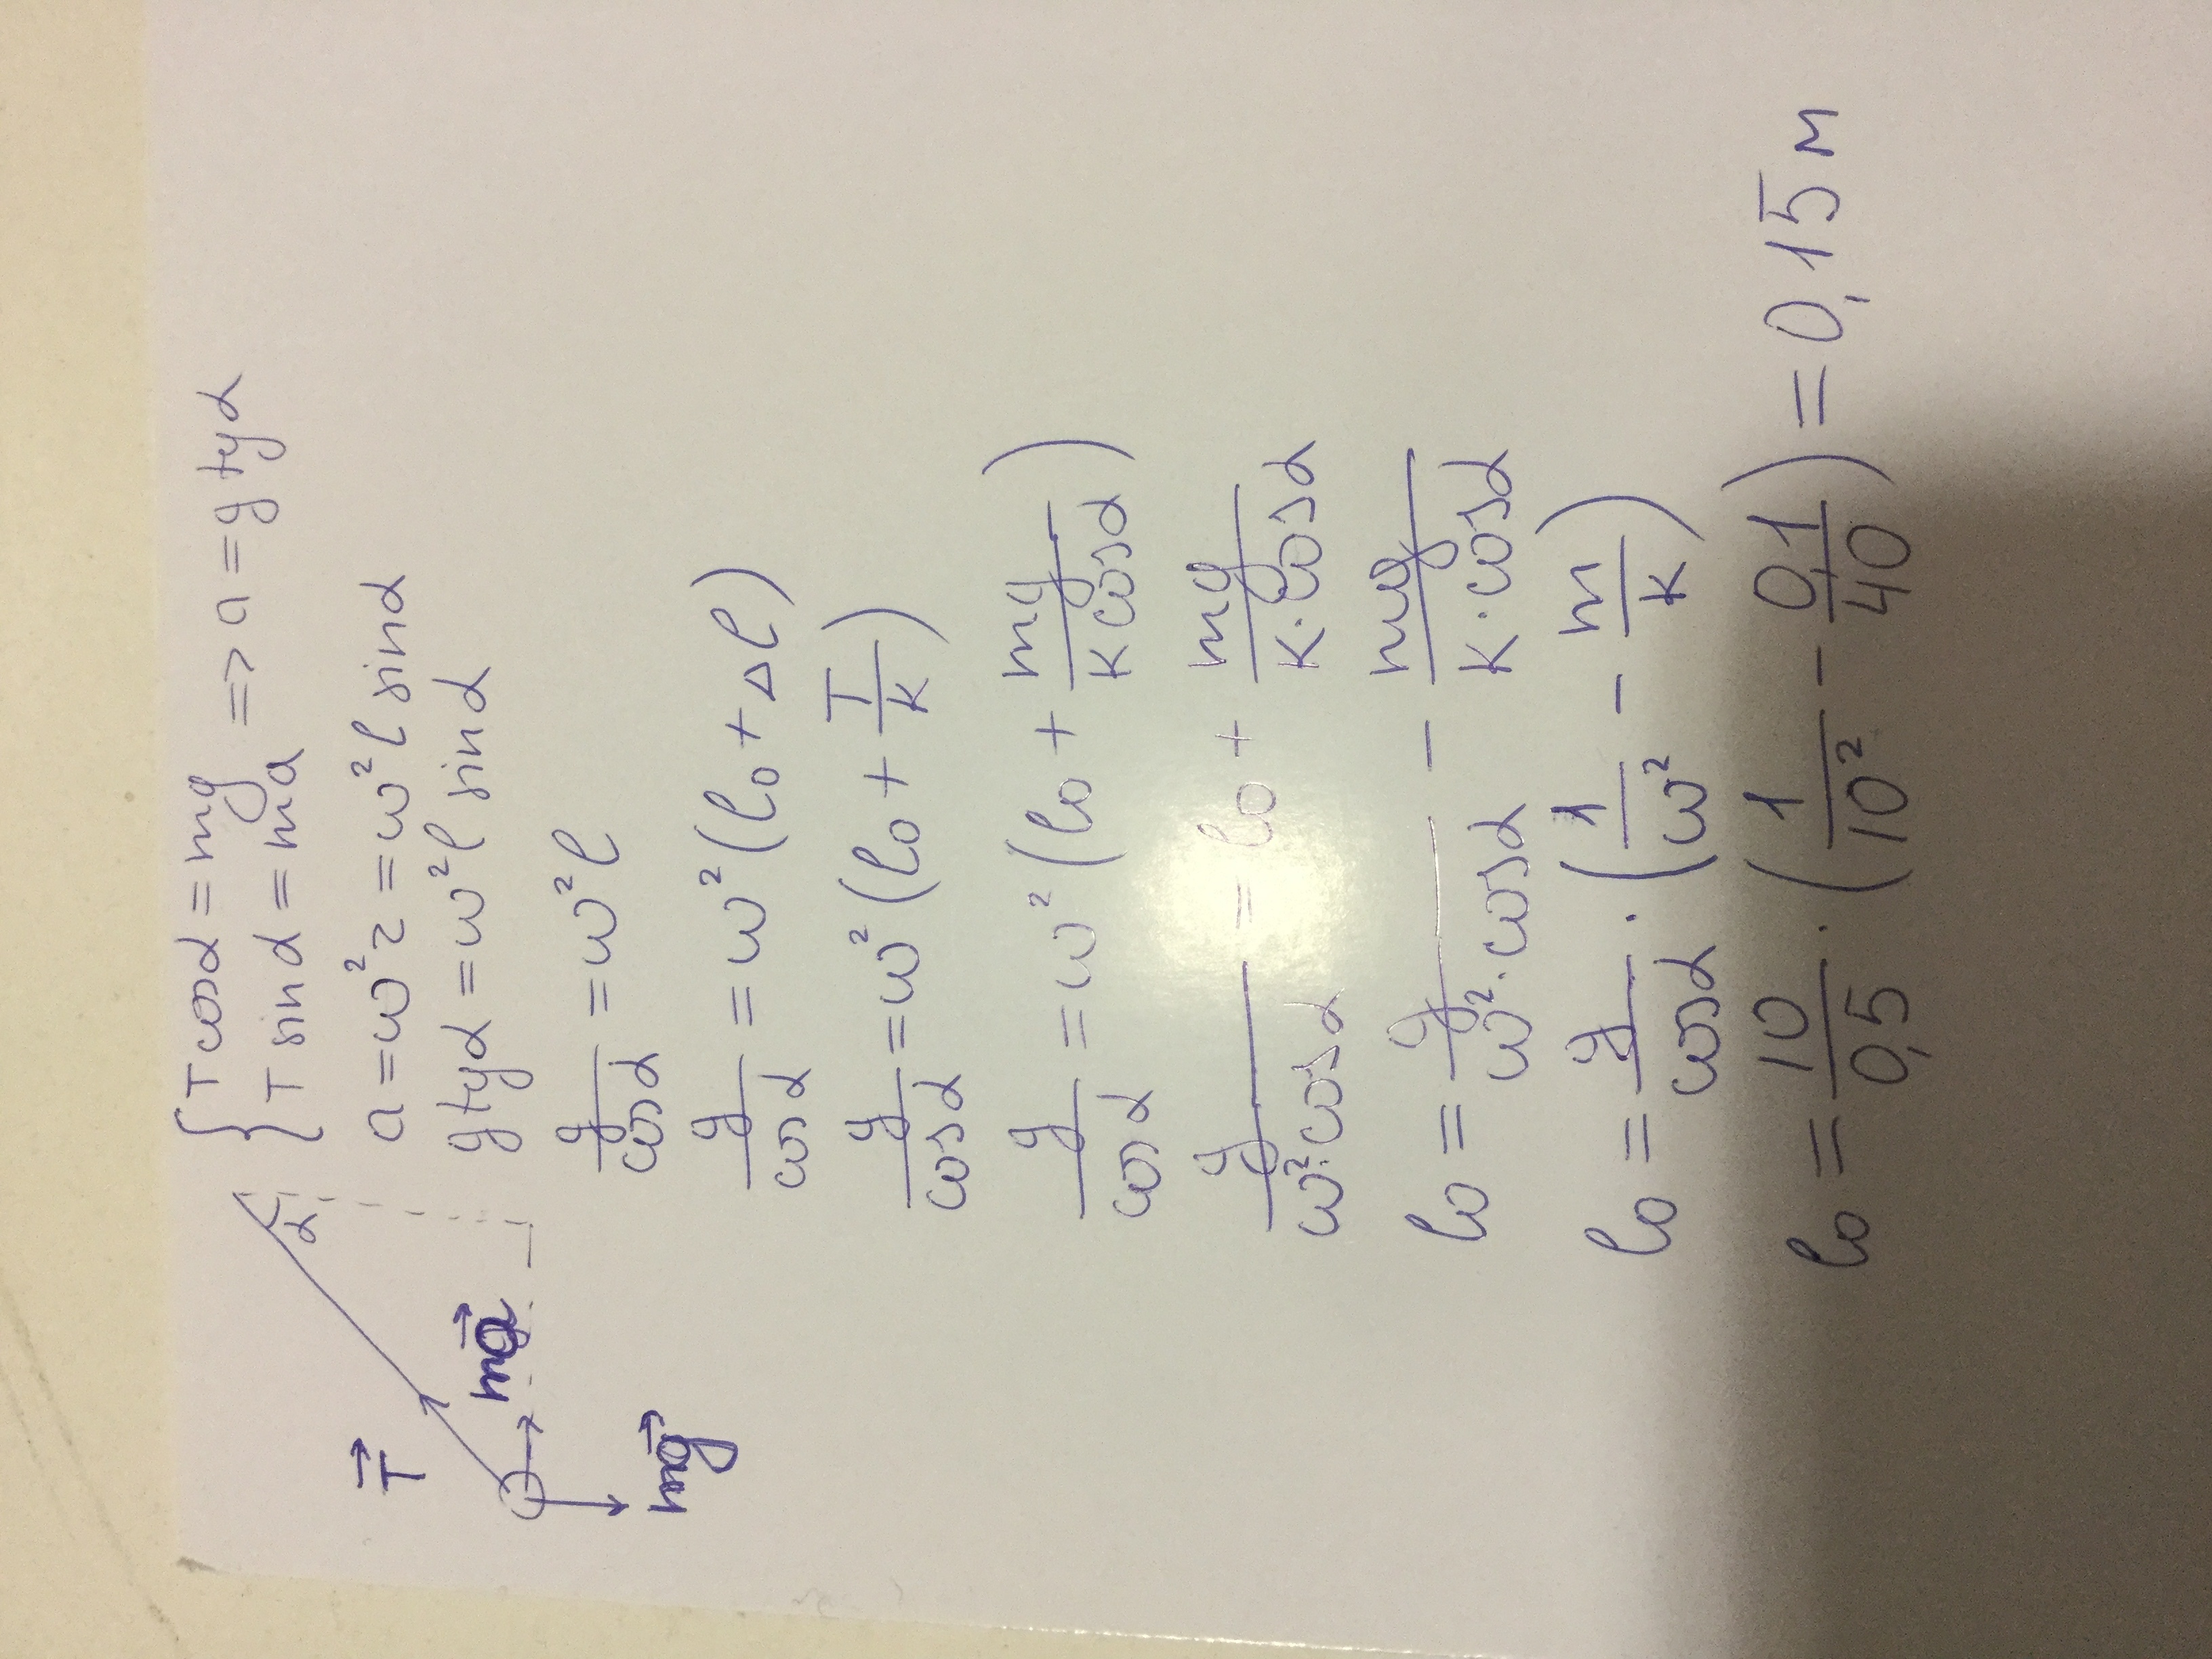 T⃗
ma⃗
mg⃗
α
{ T cosα = mg
T sinα = ma => a = g tgα
a = ω²r = ω²l sinα
g tgα = ω²l sinα
g/cosα = ω²l
g/cosα = ω²(l₀ + Δl)
g/cosα = ω²(l₀ + T/k)
g/cosα = ω²(l₀ + mg/(k cosα))
g/(ω²·cosα) = l₀ + mg/(k·cosα)
l₀ = g/(ω²·cosα) - mg/(k·cosα)
l₀ = g/cosα · (1/ω² - m/k)
l₀ = 10/0,5 · (1/10² - 0,1/40) = 0,15 м